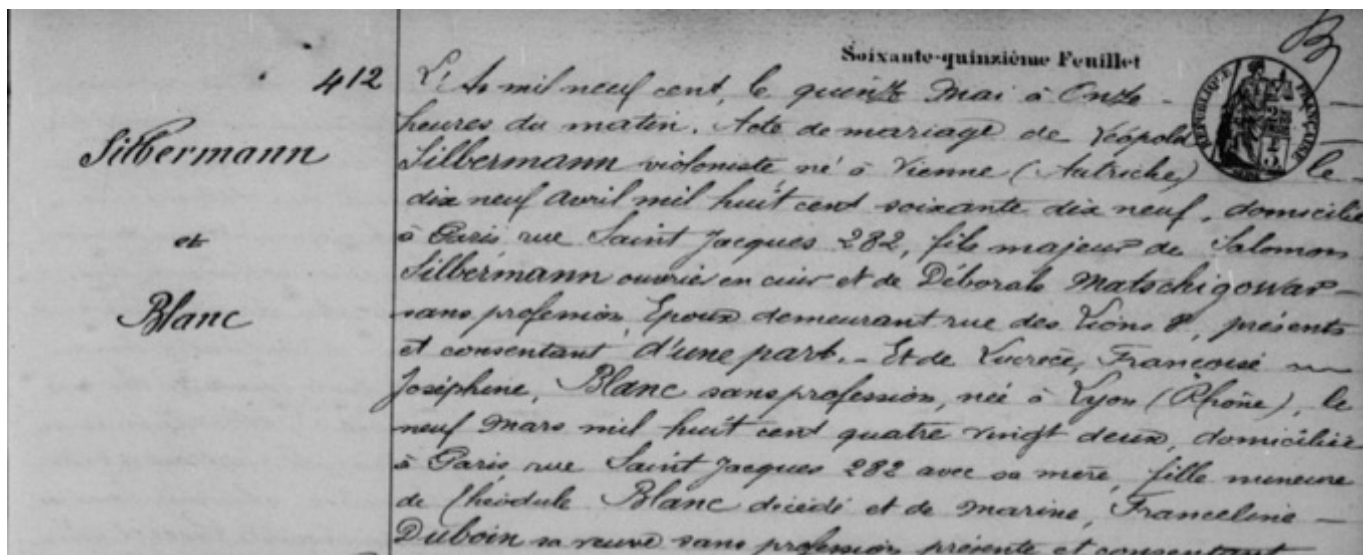 Soixante-quinzième Feuillet
412
Silbermann
et
Blanc
L'An mil neuf cent, le quinze Mai à Onze
heures du matin. Acte de mariage de Léopold
Silbermann violoniste né à Vienne (Autriche) le
dix neuf avril mil huit cent soixante dix neuf, domicilié
à Paris rue Saint Jacques 282, fils majeur de Salomon
Silbermann ouvrier en cuir et de Déborah Matschigowar
sans profession, Epoux demeurant rue des Lions 8, présents
et consentant d'une part. _ Et de Lucrèce, Françoise
Joséphine, Blanc sans profession, née à Lyon (Rhône), le
neuf Mars mil huit cent quatre vingt deux, domiciliée
à Paris rue Saint Jacques 282 avec sa mère, fille mineure
de Théodule Blanc décédé et de Marine, Franceline
Duboin sa veuve sans profession présente et consentant
REPUBLIQUE FRANÇAISE